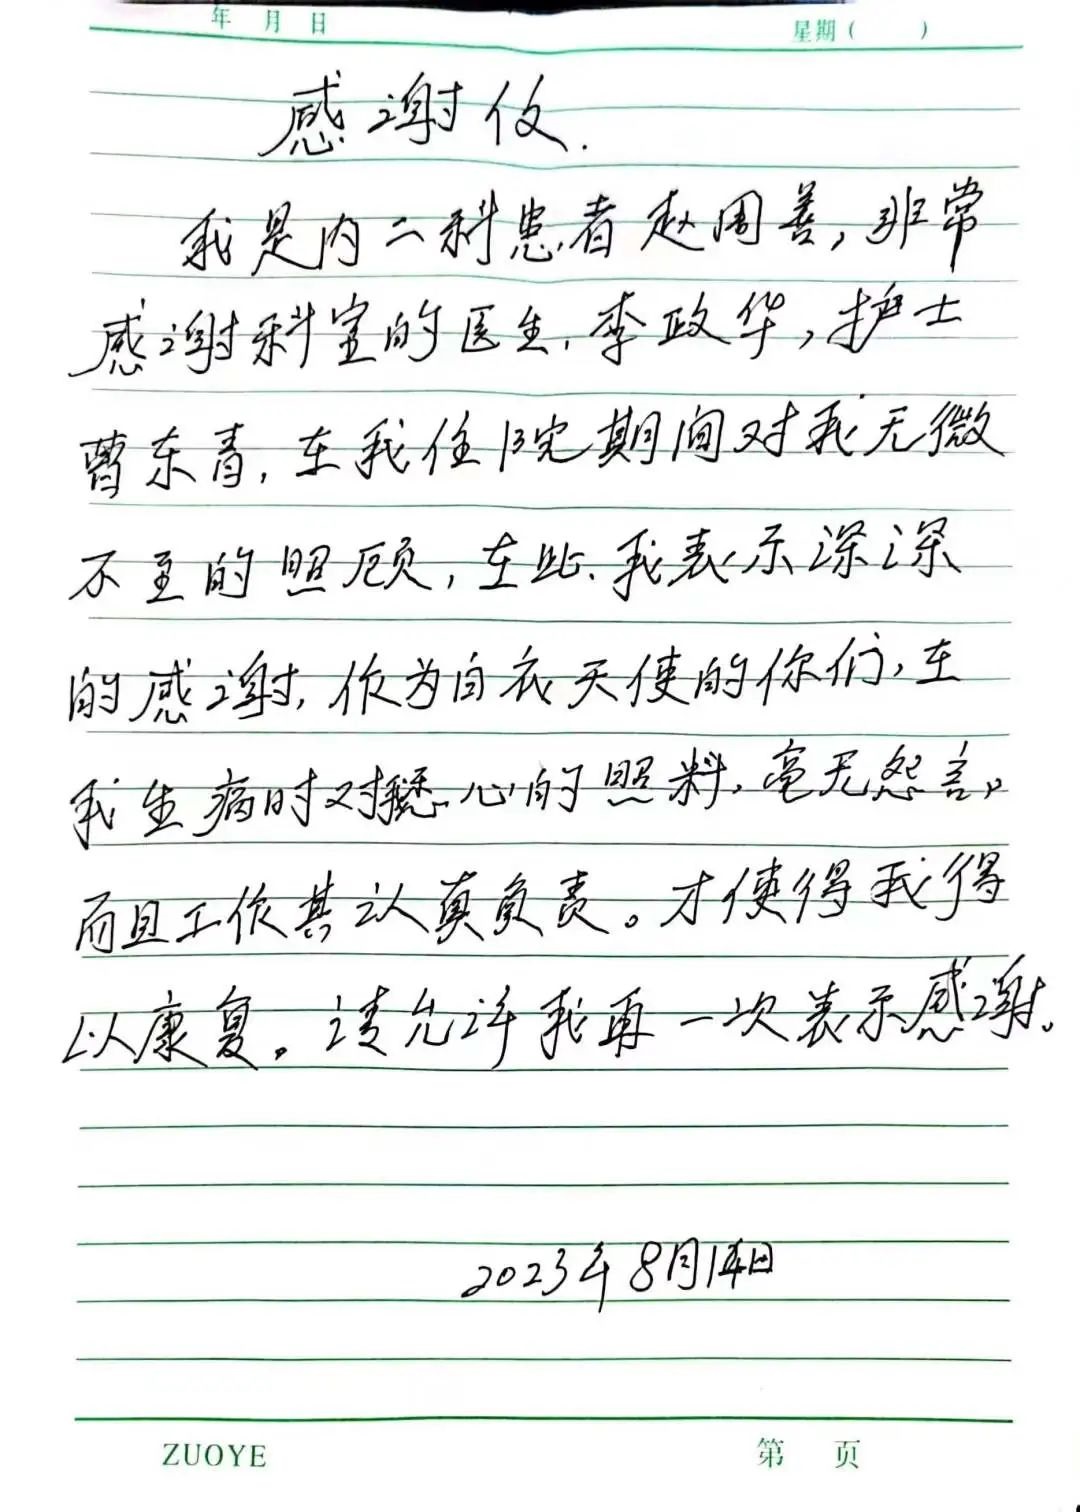 年 月 日 星期( )
感谢信.
我是内二科患者赵周善,非常
感谢科室的医生,李政华,护士
曹东青,在我住院期间对我无微
不至的照顾,在此、我表示深深
的感谢,作为白衣天使的你们,在
我生病时对我悉心的照料,毫无怨言,
而且工作其认真负责。才使得我得
以康复。请允许我再一次表示感谢。
2023年8月14日
ZUOYE 第 页